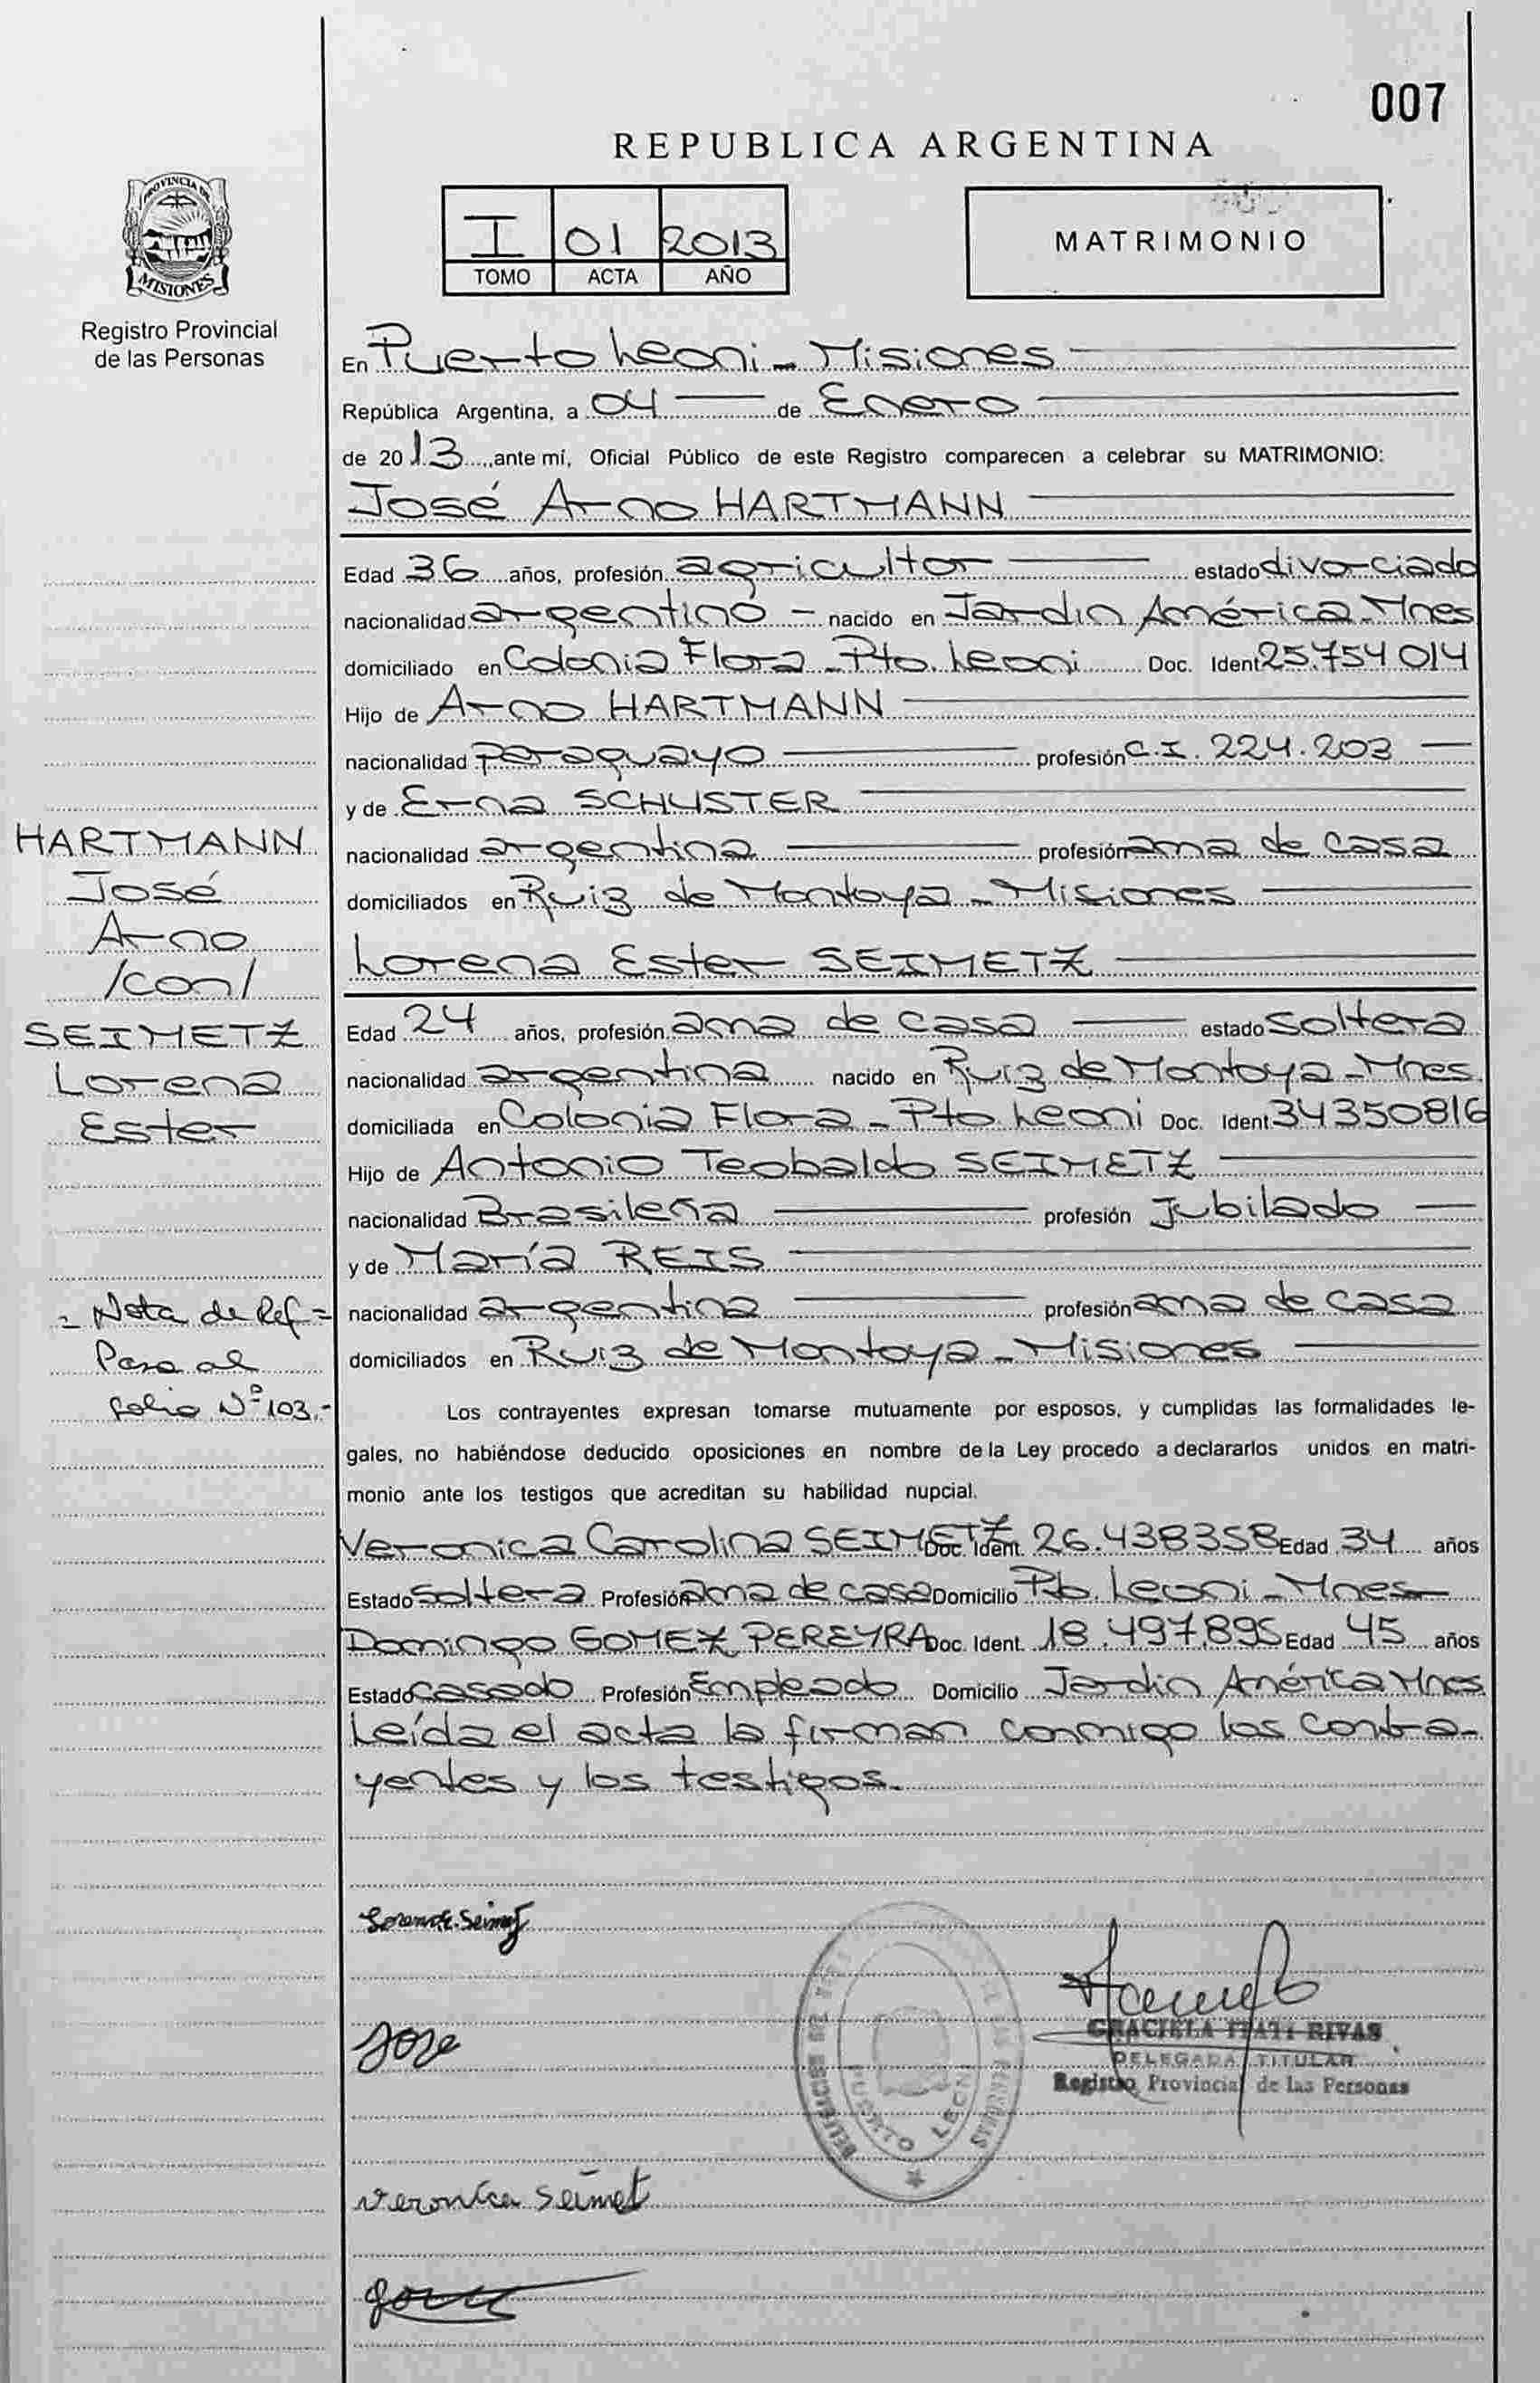 007
REPUBLICA ARGENTINA
PROVINCIA DE
MISIONES
Registro Provincial
de las Personas
I 01 2013
TOMO ACTA AÑO
MATRIMONIO
En Puerto Leoni - Misiones
República Argentina, a 04 de Enero
de 2013, ante mí, Oficial Público de este Registro comparecen a celebrar su MATRIMONIO:
José Arno HARTMANN
Edad 36 años, profesión agricultor estado divorciado
nacionalidad argentino - nacido en Jardín América - Mnes
domiciliado en Colonia Flora - Pto. Leoni Doc. Ident 25.754 014
Hijo de Arno HARTMANN
nacionalidad paraguayo profesión C.I. 224.203
y de Erna SCHUSTER
nacionalidad argentina profesión ama de casa
domiciliados en Ruiz de Montoya - Misiones
HARTMANN
José
Arno
/con/
SEIMETZ
Lorena
Ester
Lorena Ester SEIMETZ
Edad 24 años, profesión ama de casa estado soltera
nacionalidad argentina nacido en Ruiz de Montoya - Mnes.
domiciliada en Colonia Flora - Pto. Leoni Doc. Ident. 34350816
Hijo de Antonio Teobaldo SEIMETZ
nacionalidad Brasileña profesión Jubilado
y de María REIS
nacionalidad argentina profesión ama de casa
domiciliados en Ruiz de Montoya - Misiones
= Nota de Ref =
Pasa al
folio Nº 103.-
Los contrayentes expresan tomarse mutuamente por esposos, y cumplidas las formalidades le-
gales, no habiéndose deducido oposiciones en nombre de la Ley procedo a declararlos unidos en matri-
monio ante los testigos que acreditan su habilidad nupcial.
Veronica Carolina SEIMETZ Doc. Ident. 26.438358 Edad 34 años
Estado soltera Profesión ama de casa Domicilio Pto. Leoni - Mnes
Domingo GOMEZ PEREYRA Doc. Ident. 18.497.895 Edad 45 años
Estado casado Profesión Empleado Domicilio Jardín América Mnes
Leída el acta la firman conmigo los contra-
yentes y los testigos.
Jose
GRACIELA ITATI RIVAS
DELEGADA TITULAR
Registro Provincial de las Personas
PUERTO LEONI
veronica Seimet